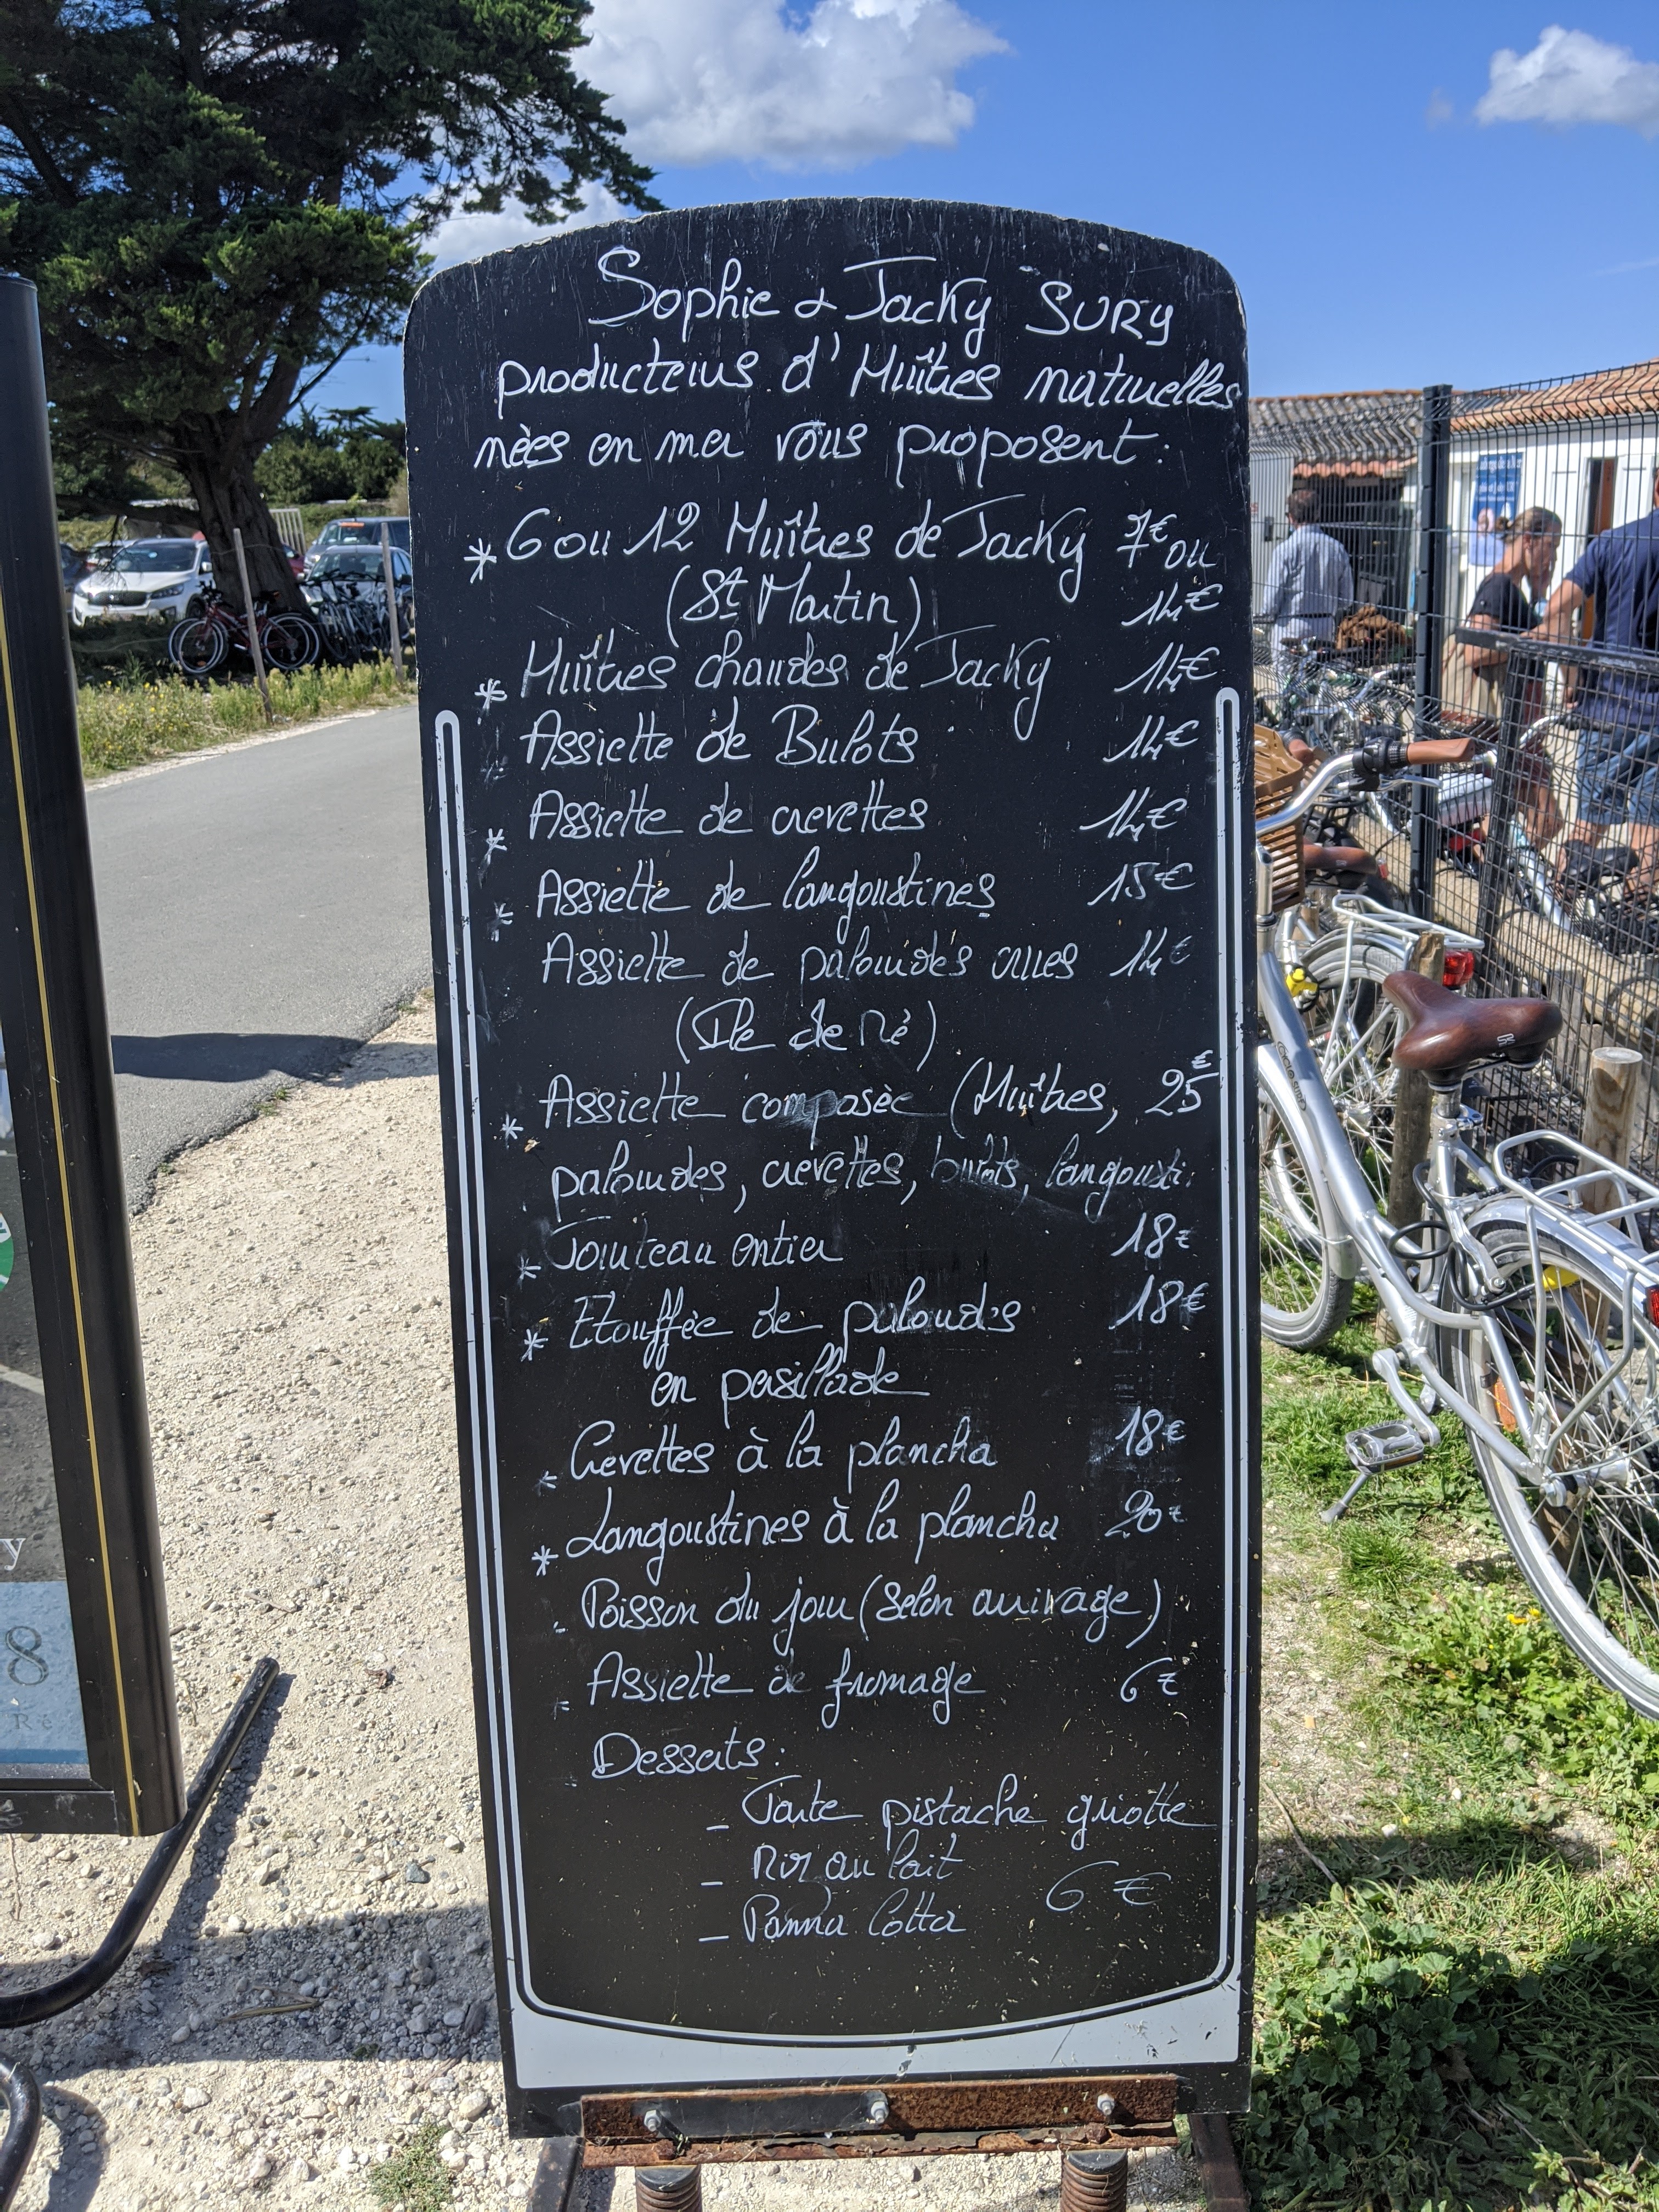 Sophie & Jacky SURY
producteurs d'Huîtres naturelles
nèes en mer vous proposent :
* 6 ou 12 Huîtres de Jacky 7€ ou
(St Martin) 14€
* Huîtres chaudes de Jacky 14€
* Assiette de Bulots 14€
* Assiette de crevettes 14€
* Assiette de langoustines 15€
Assiette de palourdes crues 14€
(Ile de Ré)
* Assiette composèe (Huîtres, 25€
palourdes, crevettes, bulots, langousti.
* Tourteau entier 18€
* Etouffèe de palourdes 18€
en persillade
* Crevettes à la plancha 18€
* Langoustines à la plancha 20€
- Poisson du jour (selon arrivage)
- Assiette de fromage 6€
Desserts :
- Tarte pistache griotte
- Riz au lait
6 €
- Panna Cotta
y
8
Ré